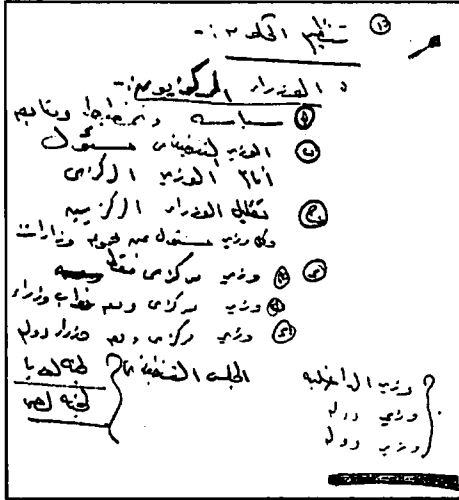 تنظيم الحكومة :-
الوزراء المركزيون :-
أ سياسة وتخطيط ومتابعة
ب الوزير التنفيذى مسئول
أمام الوزير المركزى
ج تقليل الوزراء المركزيين
وكل وزير مسئول عن وزارات
د وزير مركزى فقط
وزير مركزى ومعه نواب وزراء
وزير مركزى ومعه وزراء دولة
المجلس التنفيذى
لجنة
لجنة
وزير الداخلية
وزير دولة
وزير دولة